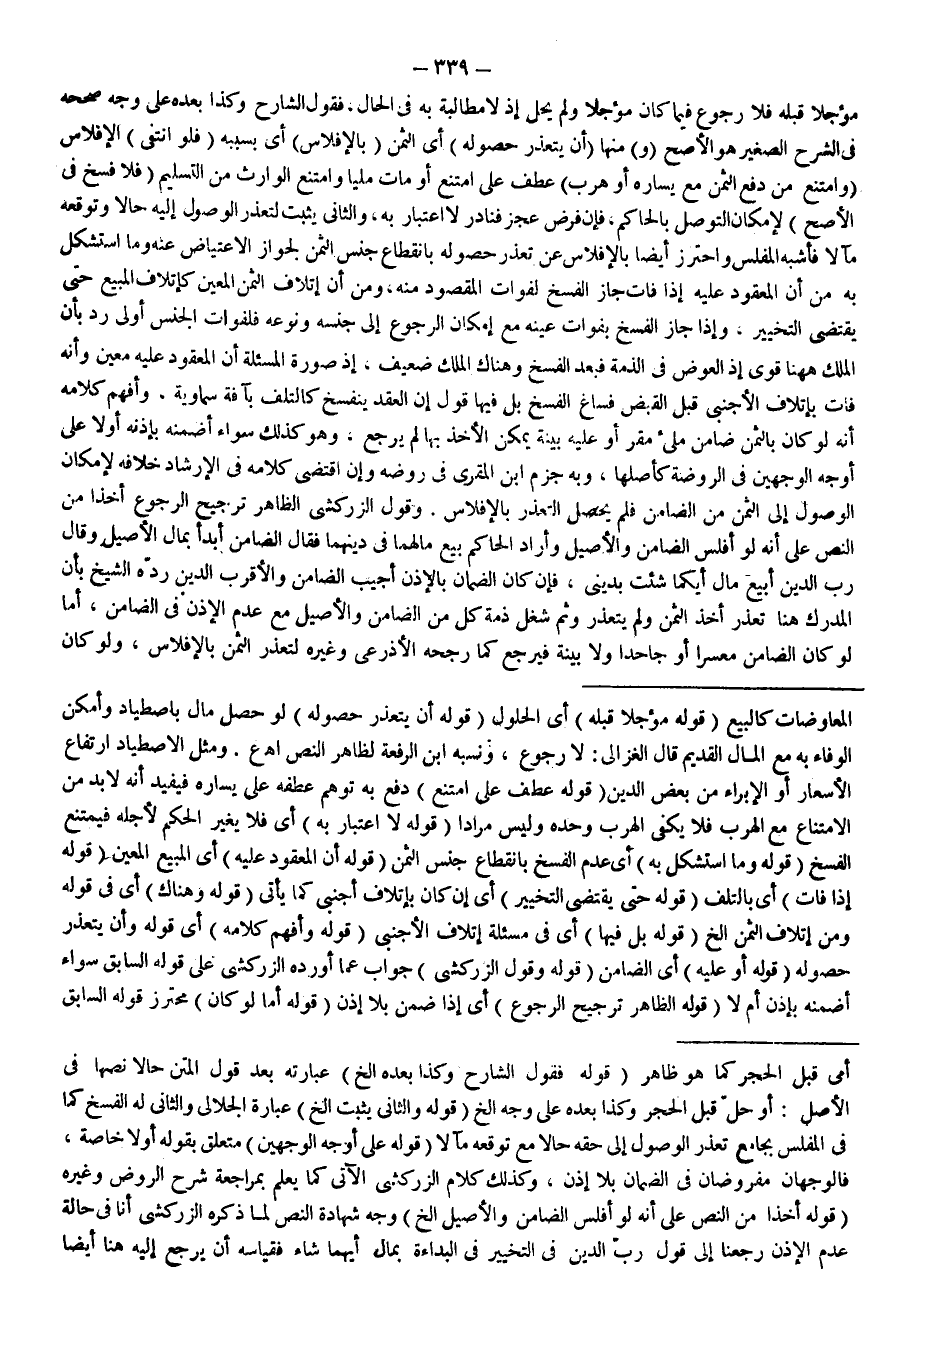 — ٣٣٩ —
مؤجلا قبله فلا رجوع فيما كان مؤجلا ولم يحل إذ لا مطالبة به فى الحال ، فقول الشارح وكذا بعده على وجه صححه
فى الشرح الصغير هو الأصح (و) منها (أن يتعذر حصوله) أى الثمن (بالإفلاس) أى بسببه (فلو انتفى) الإفلاس
(وامتنع من دفع الثمن مع يساره أو هرب) عطف على امتنع أو مات مليا وامتنع الوارث من التسليم (فلا فسخ فى
الأصح) لإمكان التوصل بالحاكم ، فإن فرض عجز فنادر لا اعتبار به ، والثانى يثبت لتعذر الوصول إليه حالا وتوقعه
مآلا فأشبه المفلس واحترز أيضا بالإفلاس عن تعذر حصوله بانقطاع جنس الثمن لجواز الاعتياض عنه وما استشكل
به من أن المعقود عليه إذا فات جاز الفسخ لفوات المقصود منه ، ومن أن إتلاف الثمن المعين كإتلاف المبيع حتى
يقتضى التخيير ، وإذا جاز الفسخ بفوات عينه مع إمكان الرجوع إلى جنسه ونوعه فلفوات الجنس أولى رد بأن
الملك ههنا قوى إذ العوض فى الذمة فبعد الفسخ وهناك الملك ضعيف ، إذ صورة المسئلة أن المعقود عليه معين وأنه
فات بإتلاف الأجنبى قبل القبض فساغ الفسخ بل فيها قول إن العقد ينفسخ كالتلف بآفة سماوية . وأفهم كلامه
أنه لو كان بالثمن ضامن ملىء مقر أو عليه بينة يمكن الأخذ بها لم يرجع ، وهو كذلك سواء أضمنه بإذنه أولا على
أوجه الوجهين فى الروضة كأصلها ، وبه جزم ابن المقرى فى روضه وإن اقتضى كلامه فى الإرشاد خلافه لإمكان
الوصول إلى الثمن من الضامن فلم يحصل التعذر بالإفلاس . وقول الزركشى الظاهر ترجيح الرجوع أخذا من
النص على أنه لو أفلس الضامن والأصيل وأراد الحاكم بيع مالهما فى دينهما فقال الضامن أبدأ بمال الأصيل وقال
رب الدين أبيع مال أيكما شئت بدينى ، فإن كان الضمان بالإذن أجيب الضامن والأقرب الدين ردّه الشيخ بأن
المدرك هنا تعذر أخذ الثمن ولم يتعذر وثم شغل ذمة كل من الضامن والأصيل مع عدم الإذن فى الضامن ، أما
لو كان الضامن معسرا أو جاحدا ولا بينة فيرجع كما رجحه الأذرعى وغيره لتعذر الثمن بالإفلاس ، ولو كان
المعاوضات كالبيع (قوله مؤجلا قبله) أى الحلول (قوله أن يتعذر حصوله) لو حصل مال باصطياد وأمكن
الوفاء به مع المال القديم قال الغزالى : لا رجوع ، ونسبه ابن الرفعة لظاهر النص اهع . ومثل الاصطياد ارتفاع
الأسعار أو الإبراء من بعض الدين (قوله عطف على امتنع) دفع به توهم عطفه على يساره فيفيد أنه لابد من
الامتناع مع الهرب فلا يكفى الهرب وحده وليس مرادا (قوله لا اعتبار به) أى فلا يغير الحكم لأجله فيمتنع
الفسخ (قوله وما استشكل به) أى عدم الفسخ بانقطاع جنس الثمن (قوله أن المعقود عليه) أى المبيع المعين (قوله
إذا فات) أى بالتلف (قوله حتى يقتضى التخيير) أى إن كان بإتلاف أجنبى كما يأتى (قوله وهناك) أى فى قوله
ومن إتلاف الثمن الخ (قوله بل فيها) أى فى مسئلة إتلاف الأجنبى (قوله وأفهم كلامه) أى قوله وأن يتعذر
حصوله (قوله أو عليه) أى الضامن (قوله وقول الزركشى) جواب عما أورده الزركشى على قوله السابق سواء
أضمنه بإذن أم لا (قوله الظاهر ترجيح الرجوع) أى إذا ضمن بلا إذن (قوله أما لو كان) محترز قوله السابق
أمى قبل الحجر كما هو ظاهر (قوله فقول الشارح وكذا بعده الخ) عبارته بعد قول المتن حالا نصها فى
الأصل : أو حلّ قبل الحجر وكذا بعده على وجه الخ (قوله والثانى يثبت الخ) عبارة الجلالى والثانى له الفسخ كما
فى المفلس بجامع تعذر الوصول إلى حقه حالا مع توقعه مآلا (قوله على أوجه الوجهين) متعلق بقوله أولا خاصة ،
فالوجهان مفروضان فى الضمان بلا إذن ، وكذلك كلام الزركشى الآتى كما يعلم بمراجعة شرح الروض وغيره
(قوله أخذا من النص على أنه لو أفلس الضامن والأصيل الخ) وجه شهادة النص لما ذكره الزركشى أنا فى حالة
عدم الإذن رجعنا إلى قول ربّ الدين فى التخيير فى البداءة بمال أيهما شاء فقياسه أن يرجع إليه هنا أيضا